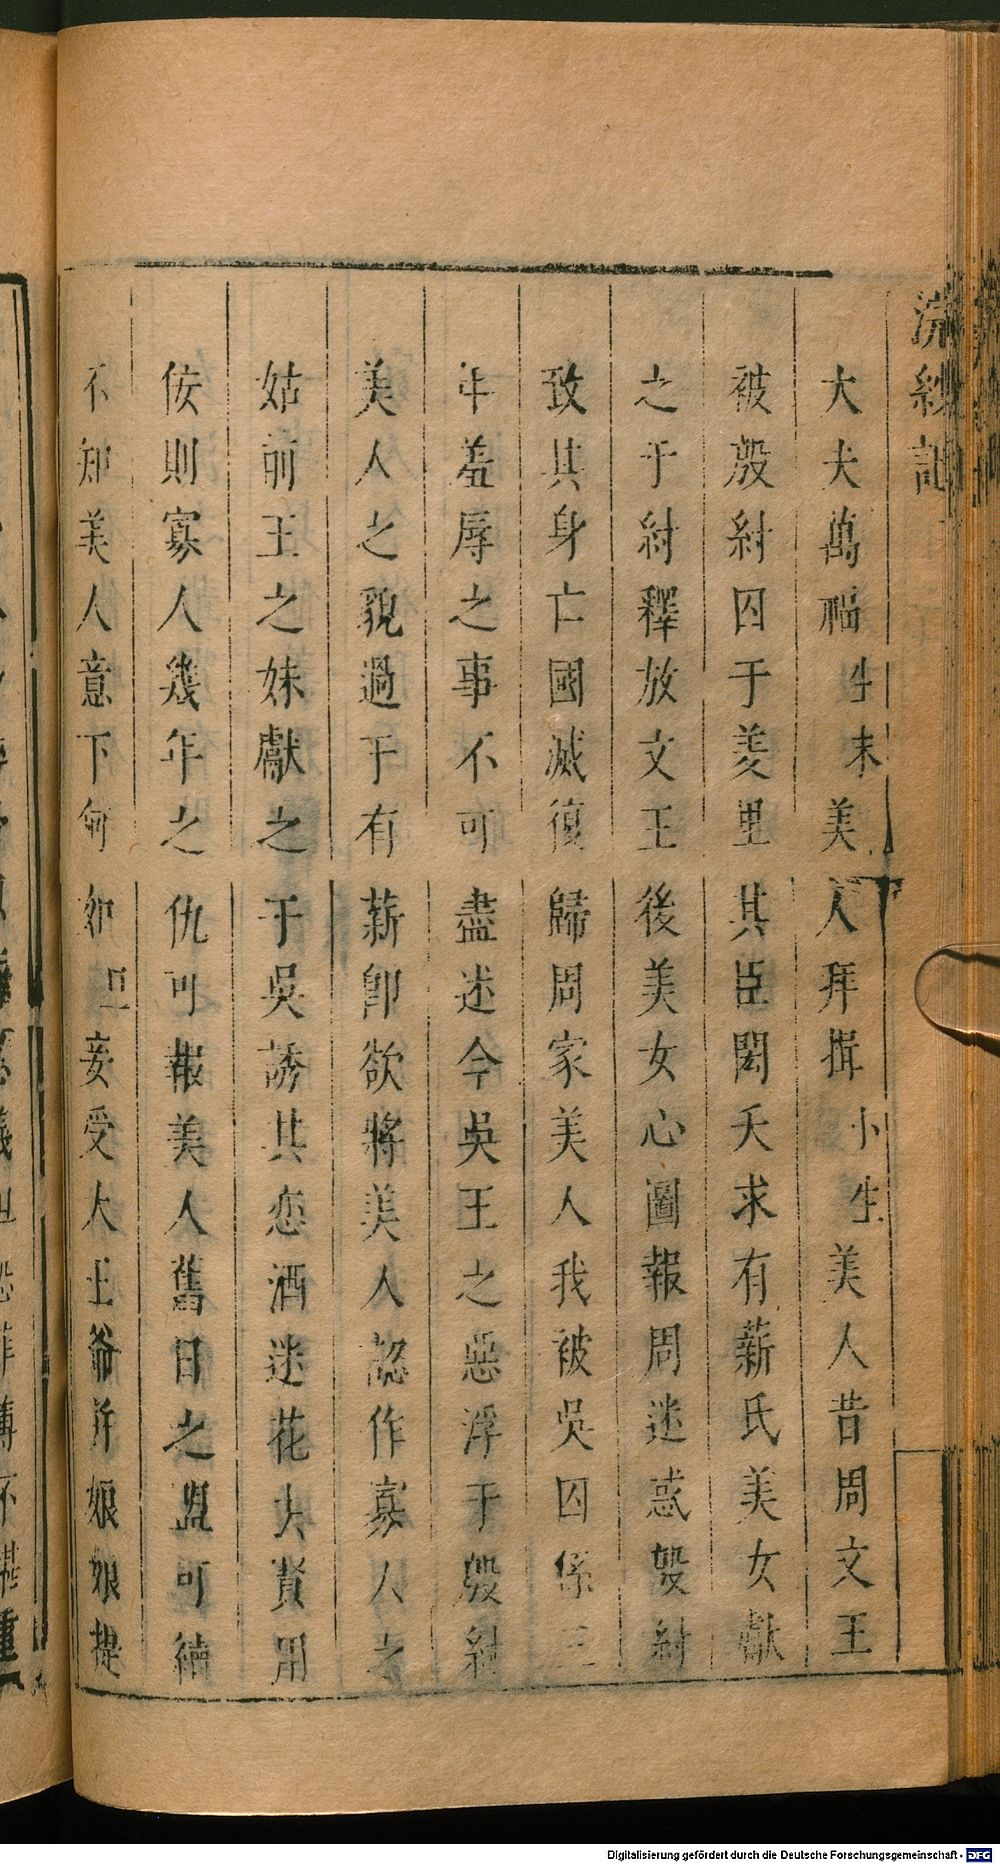 浣紗記
大夫萬福生末美人拜揖小生美人昔周文王
被殷紂囚于羑里其臣閎夭求有薪氏美女獻
之于紂釋放文王後美女心圖報周迷惑殷紂
致其身亡國滅復歸周家美人我被吳囚係三
年羞辱之事不可盡述今吳王之惡浮于殷紂
美人之貌過于有薪卽欲將美人認作寡人之
姑前王之妹獻之于吳誘其恋酒迷花大賛用
侫則寡人幾年之仇可報美人舊日之盟可續
不知美人意下何如旦妾受大王爺并娘娘提
Digitalisierung gefördert durch die Deutsche Forschungsgemeinschaft - DFG